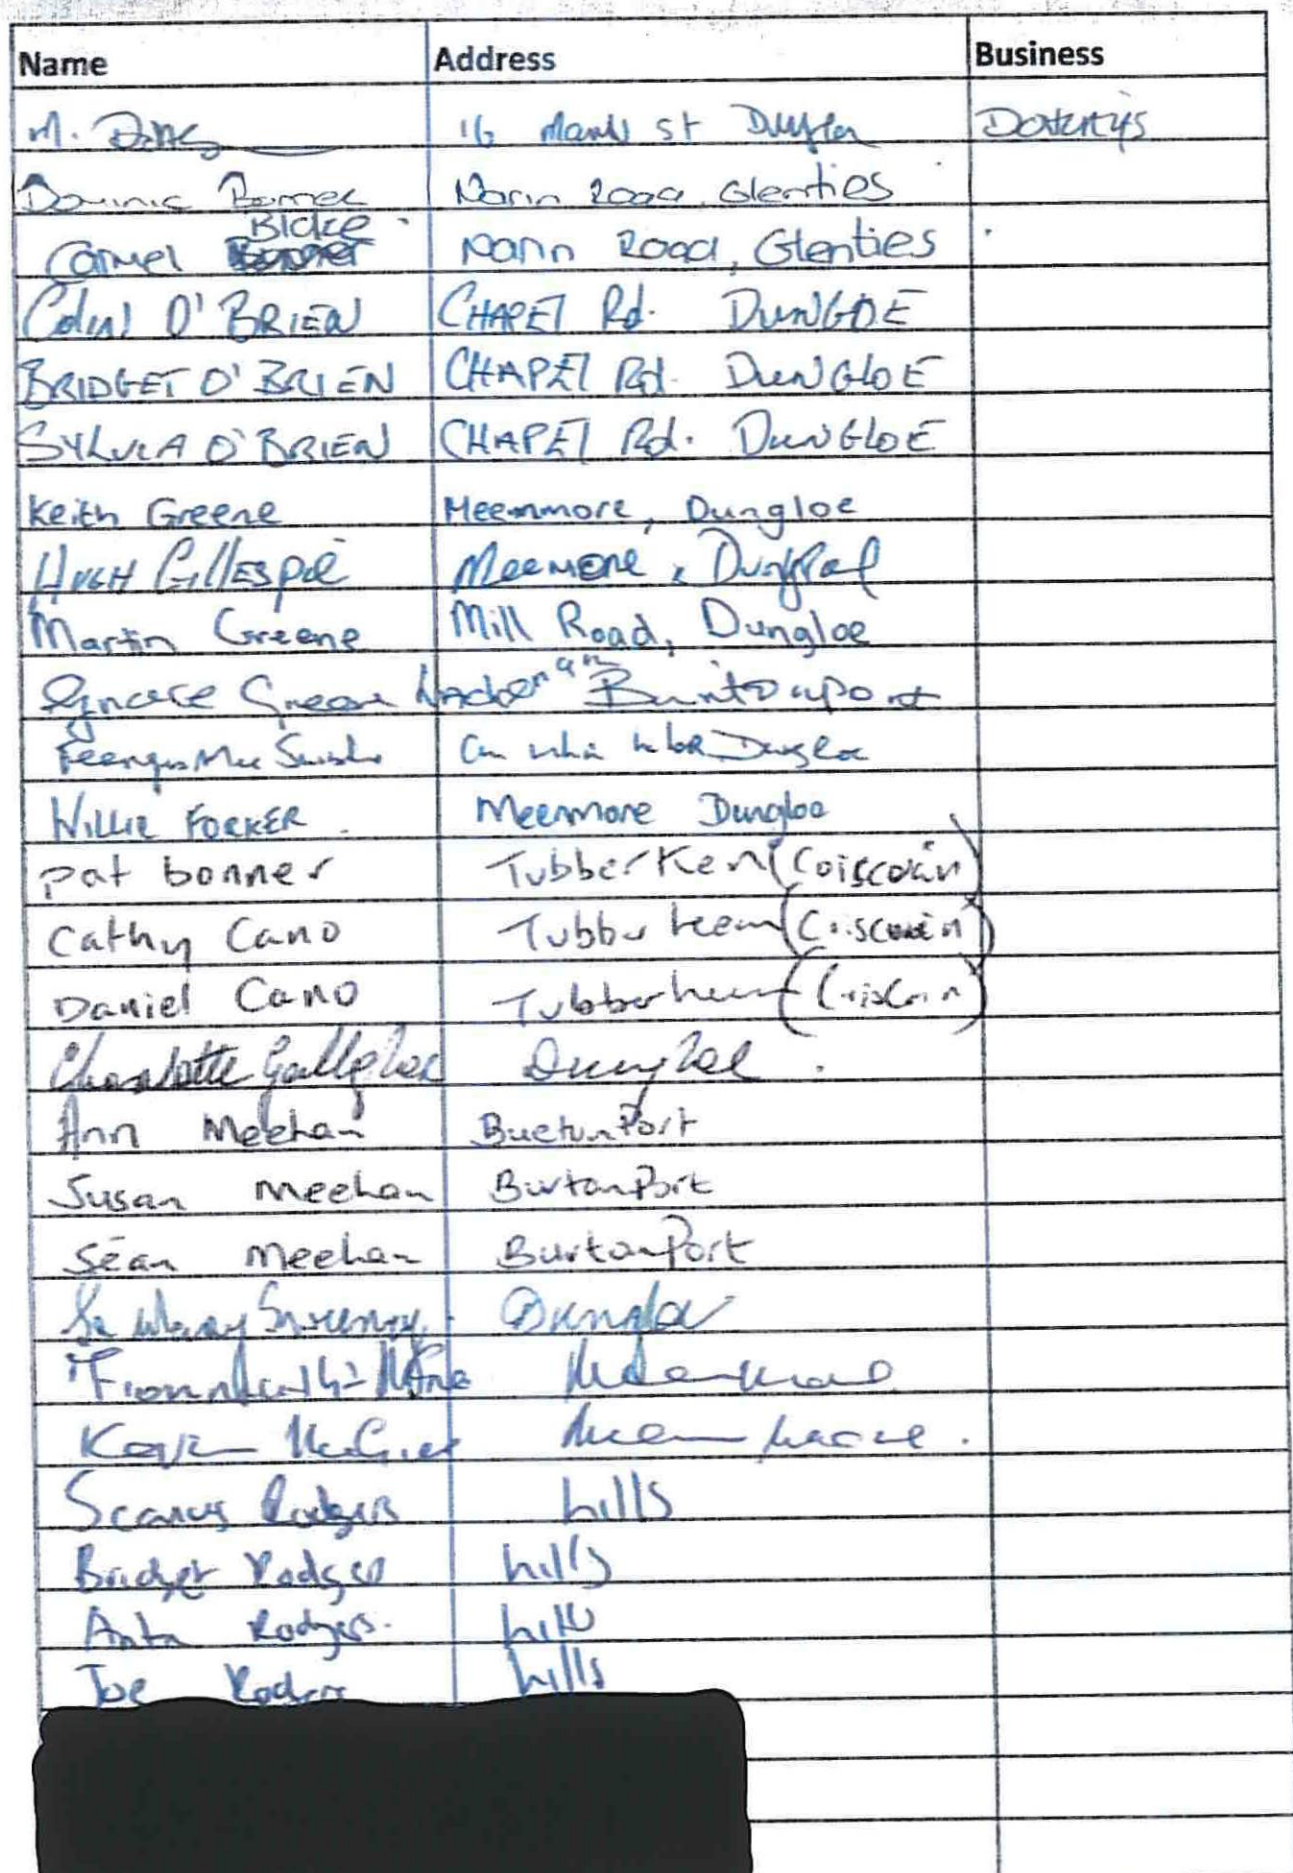 Name Address Business
M. 16 St
Dominic Bonner Narin Road, Glenties
Blake
Carmel Narin Road, Glenties
Colin O'BRIEN CHAPEL Rd. DUNGLOE
BRIDGET O'BRIEN CHAPEL Rd. DUNGLOE
SYLVIA O'BRIEN CHAPEL Rd. DUNGLOE
Keith Greene Meenmore, Dungloe
HUGH GILLESPIE Meenmore, Dungloe
Martin Greene Mill Road, Dungloe
Greene Burtonport
Dungloe
Willie FORKER Meenmore Dungloe
Pat bonner Tubberkeen (Coiscéin)
Cathy Cano Tubberkeen
Daniel Cano Tubberkeen
Charlotte Gallagher Dungloe.
Ann Meehan BurtonPort
Susan Meehan BurtonPort
Séan Meehan BurtonPort
Sweeney Dungloe
Meenmore
Meenmore.
Seamus Rodgers hills
Bridget Rodgers hills
Rodgers. hills
Joe Rodgers hills